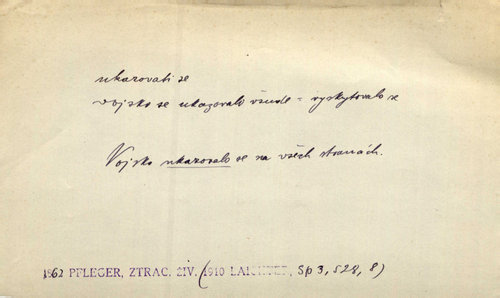 ukazovati se
vojsko se ukazovalo všude = vyskytovalo se
Vojsko ukazovalo se na všech stranách.
1862 PFLEGER, ZTRAC. ŽIV. (1910 LAICHTER, Sp 3, 528, 8)